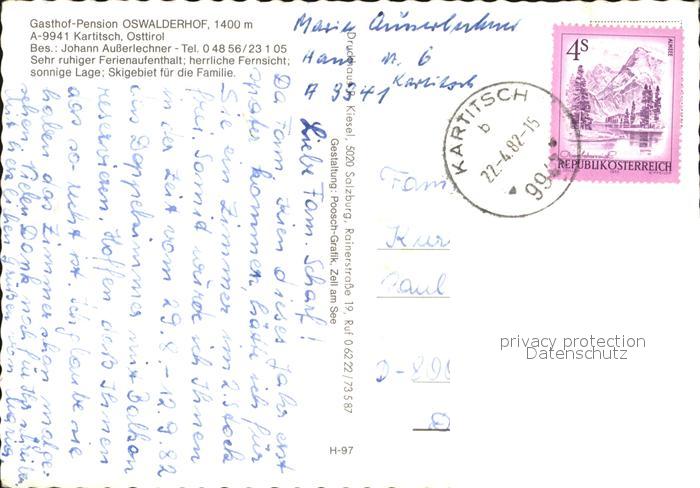 Gasthof-Pension OSWALDERHOF, 1400 m
A-9941 Kartitsch, Osttirol
Bes.: Johann Außerlechner - Tel. 0 48 56/23 1 05
Sehr ruhiger Ferienaufenthalt; herrliche Fernsicht;
sonnige Lage; Skigebiet für die Familie.
Maria Ausserlechner
6
Kartitsch
A 9941
Liebe Fam. Scharf!
Da Fam. dieses Jahr erst
später kommen, hätte ich für
Sie ein Zimmer im 2. Stock
frei. Somit würde ich Ihnen
in der Zeit vom 29.8. - 12.9.82
ein Doppelzimmer mit Balkon
reservieren. Hoffen daß Ihnen
das so recht ist. Ich glaube sie
haben das Zimmer schon mal
Vielen Dank noch für
Druck u. Kiesel, 5020 Salzburg, Rainerstraße 19, Ruf 0 62 22 / 73 5 87
Gestaltung: Poosch-Grafik, Zell am See
KARTITSCH
b
22.-4.82-15
4S
ALMSEE
REPUBLIK ÖSTERREICH
Fam
Kur
Paul
D-
privacy protection
Datenschutz
H-97